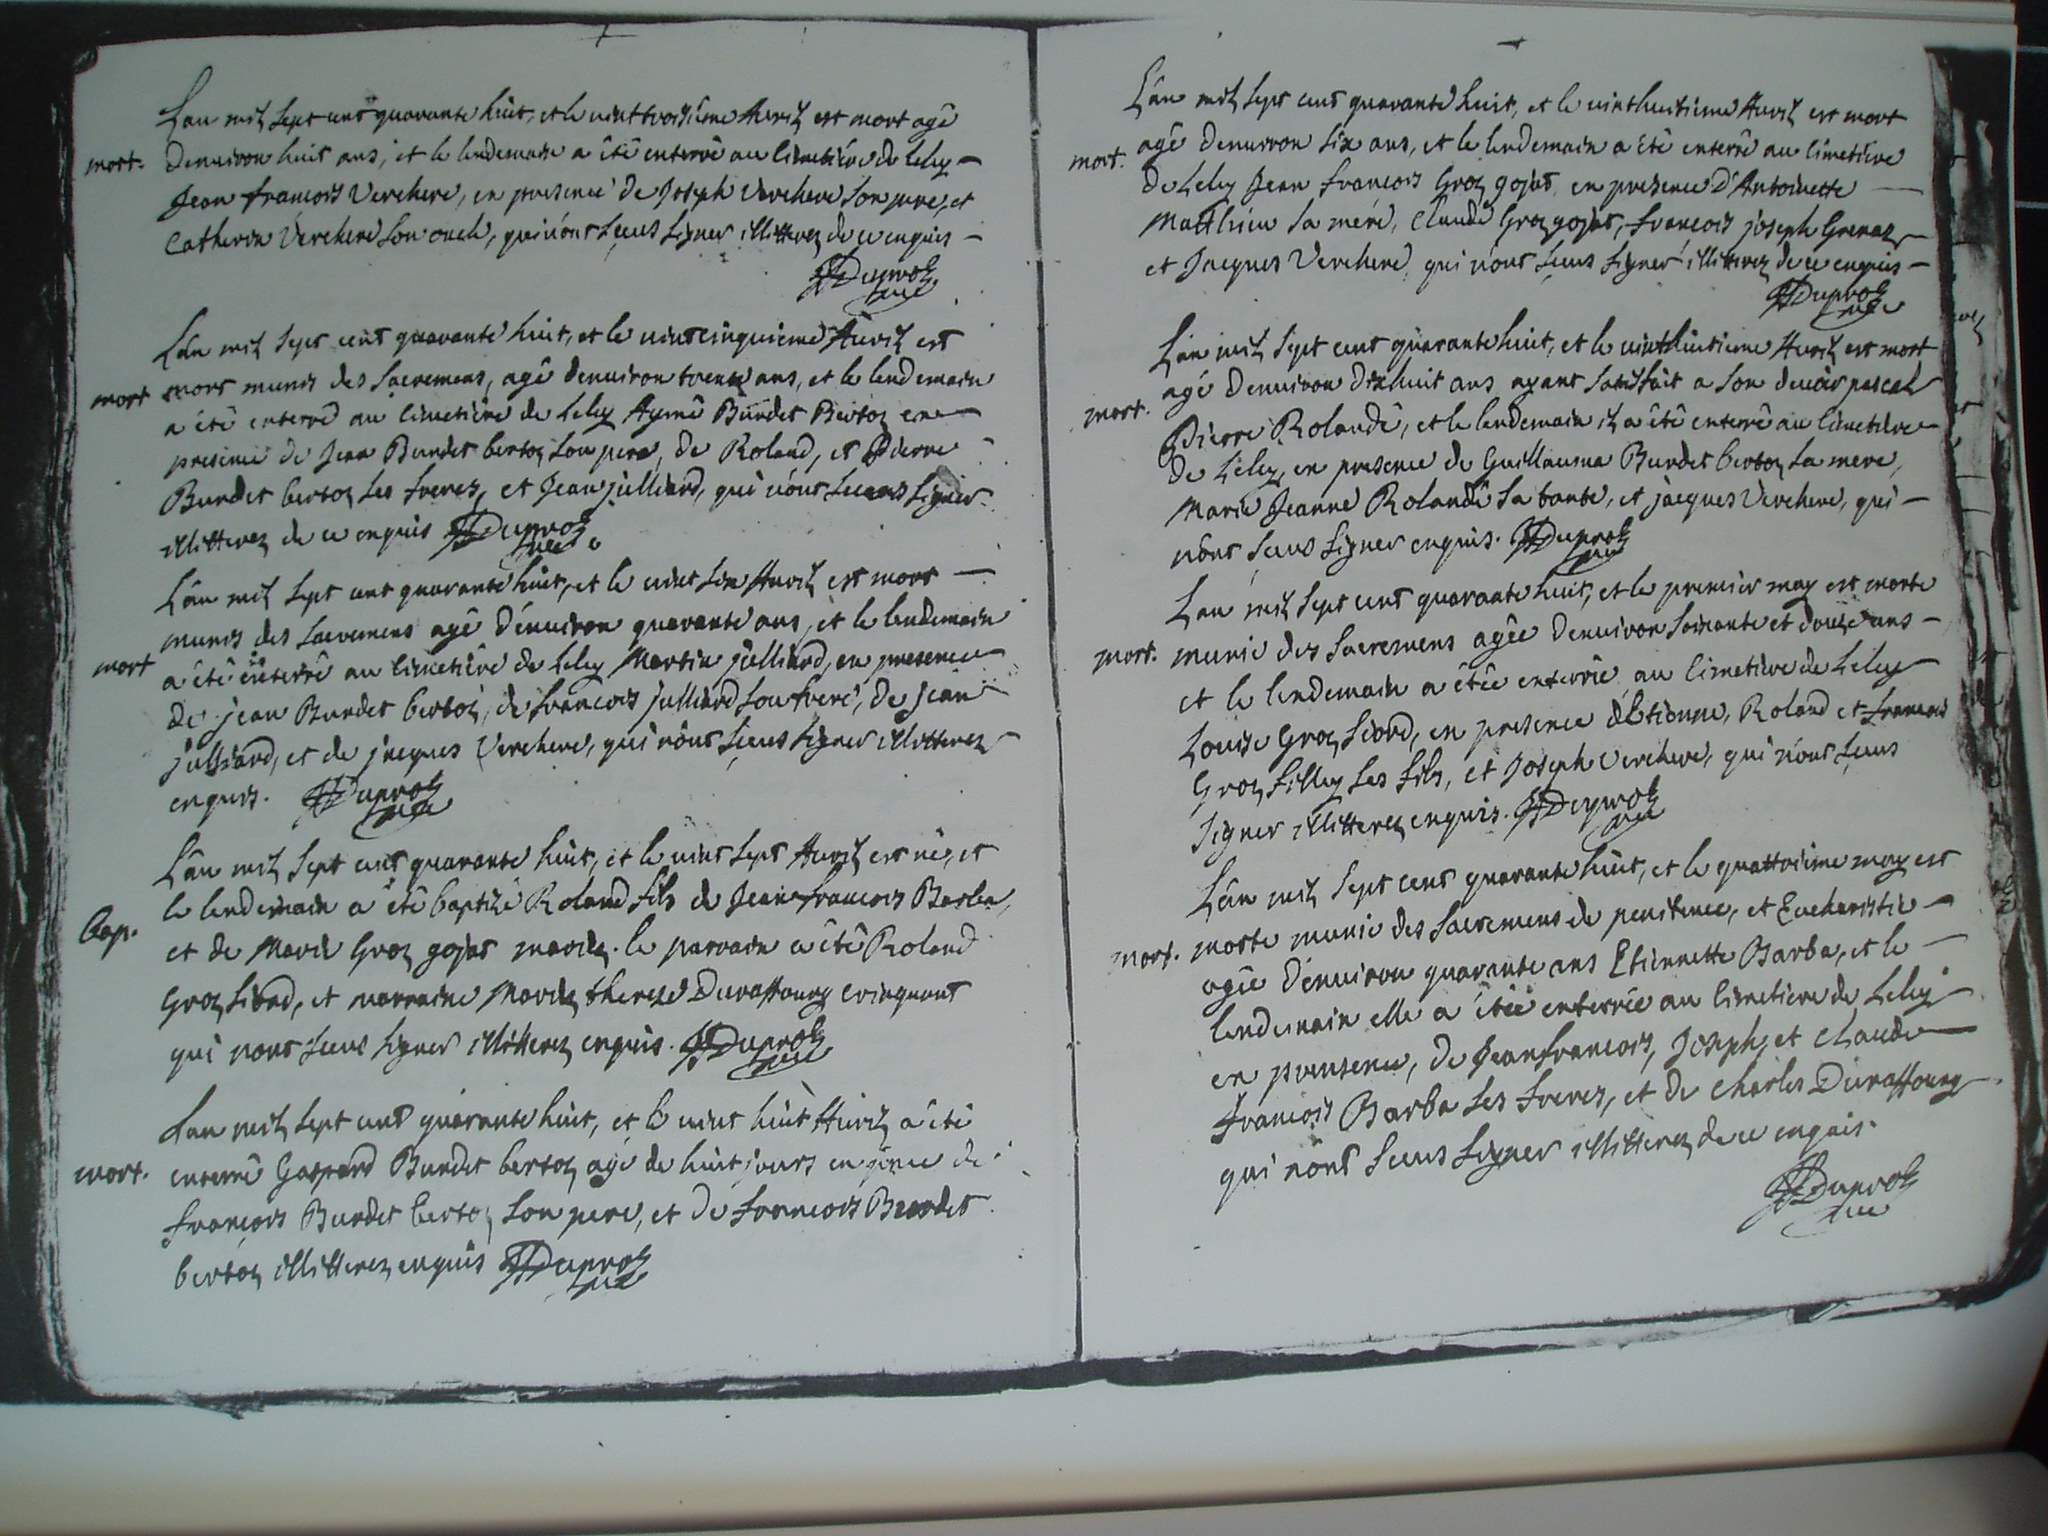 L'an mil sept cent quarante huit, et le vint troisiéme Avril est mort agé
mort. denuiron huit ans, et le lendemain a été enterré au cimetiére de Lelex
Jean francois Verchere, en presence de Joseph Verchere son pere, et
Verchere son oncle, qui n'ont sceus signer illitterez de ce enquis
Duproz
curé
L'an mil sept cent quarante huit, et le vint cinquieme Avril est
mort mort munis des sacremens, agé denuiron trente ans, et le lendemain
a été enterré au cimetiére de Lelex Aymé Burdet Bertoz en
presence de Jean Burdet bertoz son pere, de Roland, et Pierre
Burdet bertoz ses freres, et Jean julliard, qui n'ont sceus signer
illitterez de ce enquis Duproz
curé
L'an mil sept cent quarante huit, et le vint six Avril est mort
munis des sacremens agé d'enuiron quarante ans, et le lendemain
mort a été enterré au cimetiére de Lelex Martin julliard, en presence
de jean Burdet bertoz, de francois julliard son frere, de jean
julliard, et de jacques Verchere, qui n'ont sceus signer illitterez
enquis. Duproz
curé
L'an mil sept cent quarante huit, et le vint sept Avril est né, et
le lendemain a été baptizé Roland fils de Jean francois Barba,
bap. et de Marie Groz gojat mariez. le parrain a été Roland
Groz fiord, et marraine Marie therese Duraffourg
qui n'ont sceus signer illitterez enquis. Duproz
curé
L'an mil sept cent quarante huit, et le vint huit Avril a été
mort. enterré Gaspard Burdet bertoz agé de huit jours en de
françois Burdet bertoz son pere, et de francois Burdet
bertoz illitterez enquis Duproz
curé
L'an mil sept cent quarante huit, et le vinthuitieme Avril est mort
mort. agé denuiron six ans, et le lendemain a été enterré au cimetiére
de Lelex Jean francois Groz gojat en presence d'Antoinette
Matthieu sa mére, Claude Groz gojat, francois joseph Grenaz
et Jacques Verchere, qui n'ont sceus signer illitterez de ce enquis
Duproz
curé
L'an mil sept cent quarante huit, et le vinthuitieme Avril est mort
mort. agé denuiron dixhuit ans ayant satisfait a son devoir pascal
Pierre Rolandé, et le lendemain il a été enterré au cimetiére
de Lelex, en presence de Guillauma Burdet bertoz sa mere,
Marie Jeanne Rolandé sa tante, et jacques Verchere, qui
n'ont sceus signer enquis. Duproz
curé
L'an mil sept cent quarante huit, et le premier may est morte
mort. munie des sacremens agée denuiron soixante et douze ans
et le lendemain a étée enterrée au cimetiére de Lelex
Louise Groz fiord, en presence d'Etienne, Roland et francois
Groz fillex ses fils, et Joseph Verchere, qui n'ont sceus
signer illitterez enquis. Duproz
curé
L'an mil sept cent quarante huit, et le quattorsime may est
mort. morte munie des sacremens de penitence, et Eucharistie
agée d'enuiron quarante ans Etiennette Barba, et le
lendemain elle a étée enterrée au cimetiere de Lelex
en presence, de Jean francois, Joseph, et Claude
francois Barba ses freres, et de Charles Duraffourg
qui n'ont sceus signer illitterez de ce enquis.
Duproz
curé